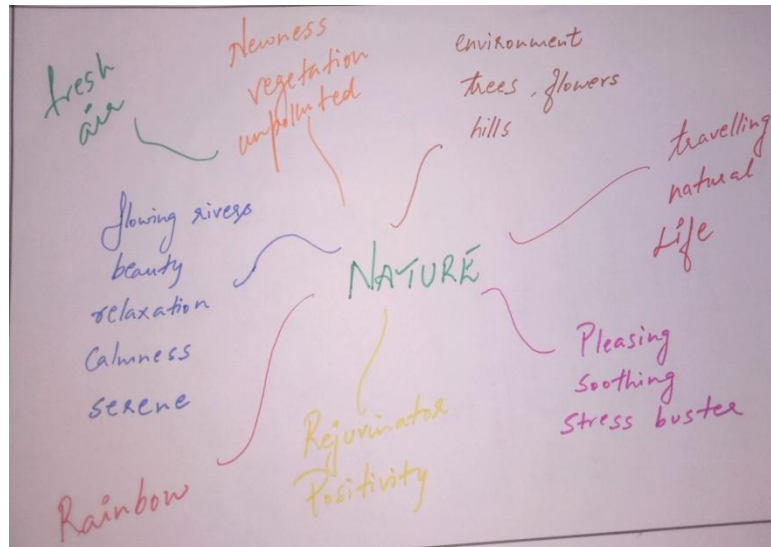 fresh
air
Newness
vegetation
unpolluted
environment
trees, flowers
hills
travelling
natural
Life
flowing rivers
beauty
relaxation
Calmness
serene
NATURE
Pleasing
soothing
stress buster
Rejuvinator
Positivity
Rainbow